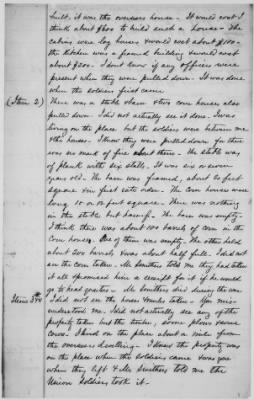 built, it was the overseers house - It would cost I
think about $600 to build such a house - The
cabins were log houses & would cost about $100 -
the kitchen was a framed building & would cost
about $200 - I don't know if any officers were
present when they were pulled down - It was done
when the soldiers first came
(Item 2) There was a stable & barn & two corn houses also
pulled down - I did not actually see it done - I was
living on the place but the soldiers were between me
& the house - I know they were pulled down for there
was no want of fire about there - the stable was
of plank with six stalls - It was six or seven
years old - The barn was framed, about 20 feet
square in first rate order - The corn houses were
log 10 or 12 feet square - There was nothing
in the stable but - The barn was empty -
I think there was about 100 barrels of corn in the
corn houses. One of them was empty - The other held
about 200 barrels & was about half full - I did not
see the corn taken - Mr told me they had taken
it all & promised him a receipt for it if he would
go to head quarters - Mr died during the war
Items 3 & 4 I did not see the horse & mules taken - You mis-
understood me. I did not actually see any of the
property taken but the timber, some plows & some
cows. I lived on the place about a mile from
the overseers dwelling - I know the property was
on the place when the soldiers came & was gone
when they left & Mr told me the
Union Soldiers took it.